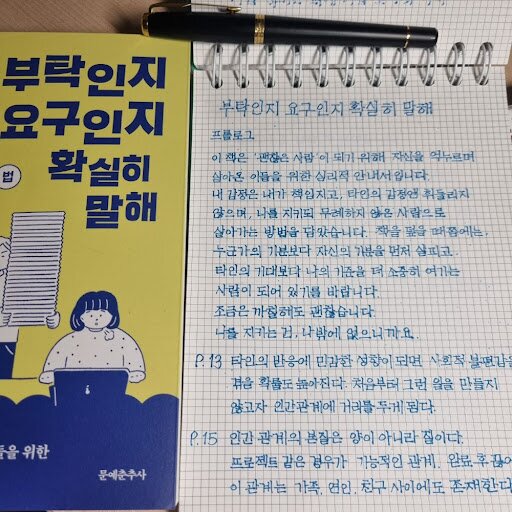 부탁인지
요구인지
확실히
말해
법
들을 위한
문예춘추사
부탁인지 요구인지 확실히 말해
프롤로그
이 책은 '괜찮은 사람'이 되기 위해 자신을 억누르며
살아온 이들을 위한 심리적 안내서입니다.
내 감정은 내가 책임지고, 타인의 감정엔 휘둘리지
않으며, 나를 지키되 무례하지 않은 사람으로
살아가는 방법을 담았습니다. 책을 덮을 때쯤에는,
누군가의 기분보다 자신의 기분을 먼저 살피고.
타인의 기대보다 나의 기준을 더 소중히 여기는
사람이 되어 있기를 바랍니다.
조금은 까칠해도 괜찮습니다.
나를 지키는 건, 나밖에 없으니까요.
P.13 타인의 반응에 민감한 성향이 되면 사회적 불편감을
겪을 확률도 높아진다. 처음부터 그런 일을 만들지
않고자 인간관계에 거리를 두게 된다.
P.15 인간 관계의 본질은 양이 아니라 질이다.
프로젝트 같은 경우가 가능적인 관계. 완료 후 끊어
이 관계는 가족, 연인, 친구 사이에도 존재한다